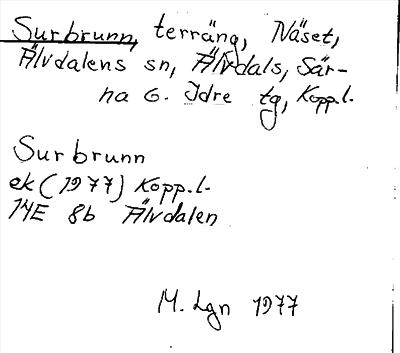 Surbrunn, terräng, Näset,
Älvdalens sn, Älvdals, Sär-
na o. Idre tg, Kopp.l.
Surbrunn
ek (1977) Kopp.l.
14E 8b Älvdalen
M. Lgn 1977